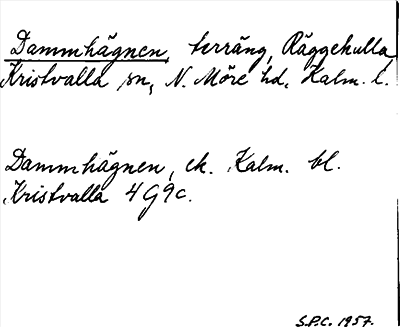 Dammhägnen, terräng, Räggekulla
Kristvalla sn, N. Möre hd, Kalm. l.
Dammhägnen, ek. Kalm. bl.
Kristvalla 4G9c.
S.P.C. 1957.